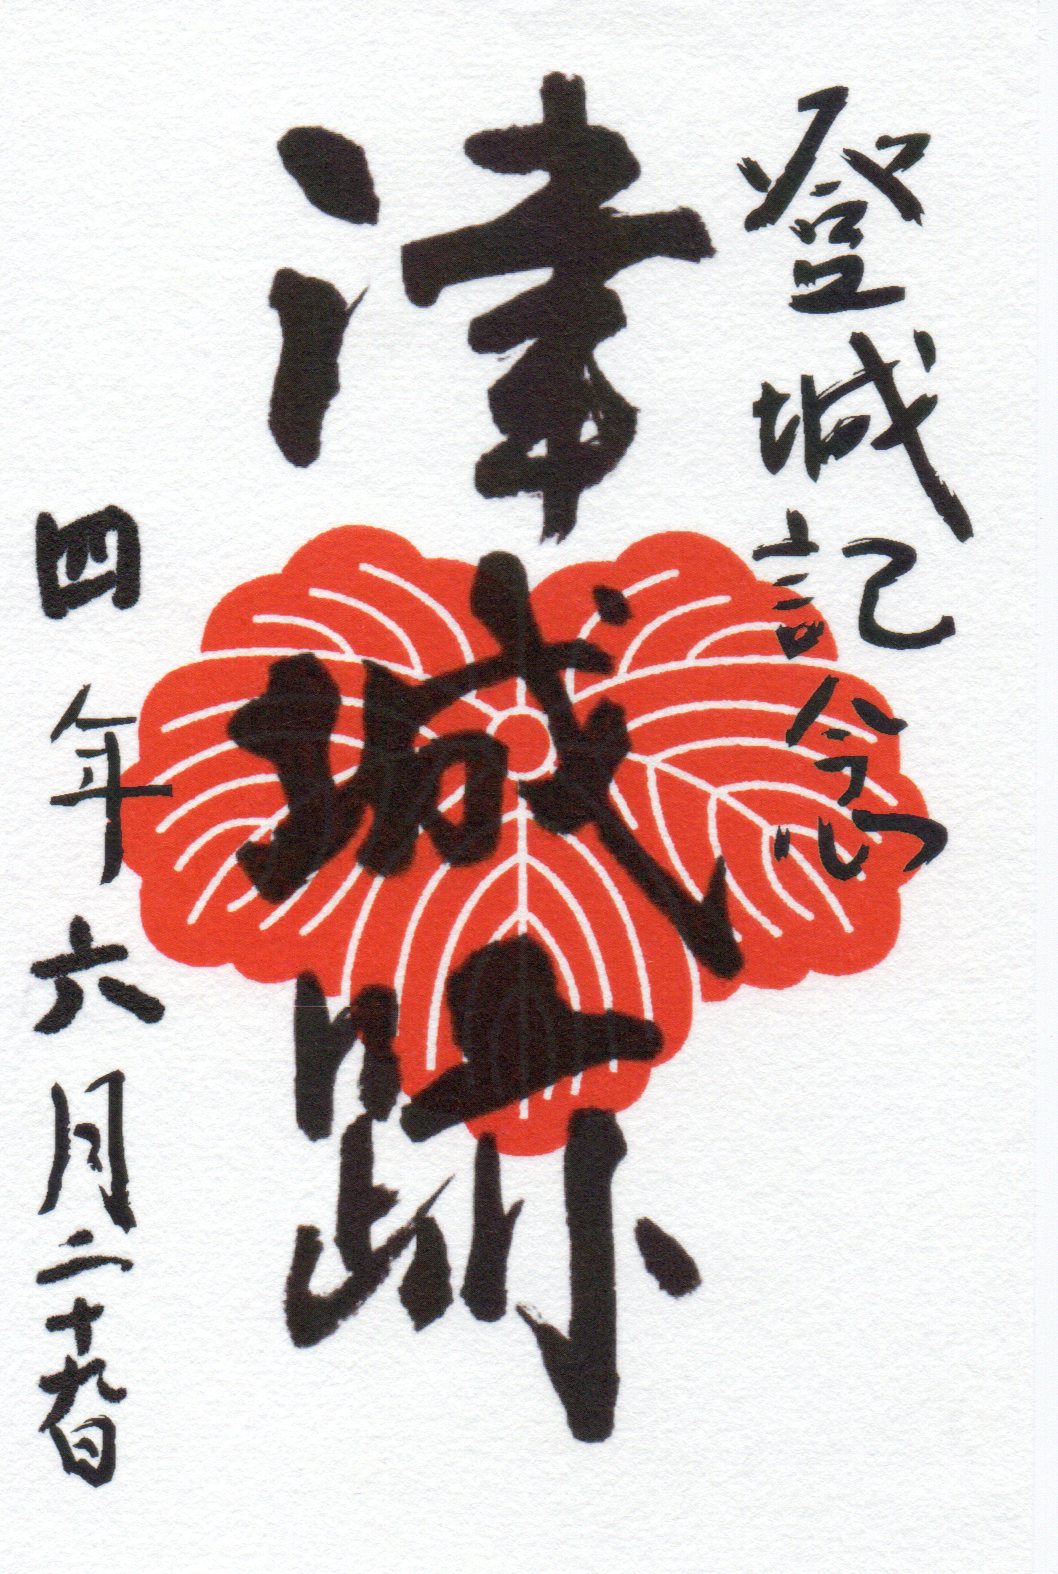 登城記念
津城跡
四年六月二十九日